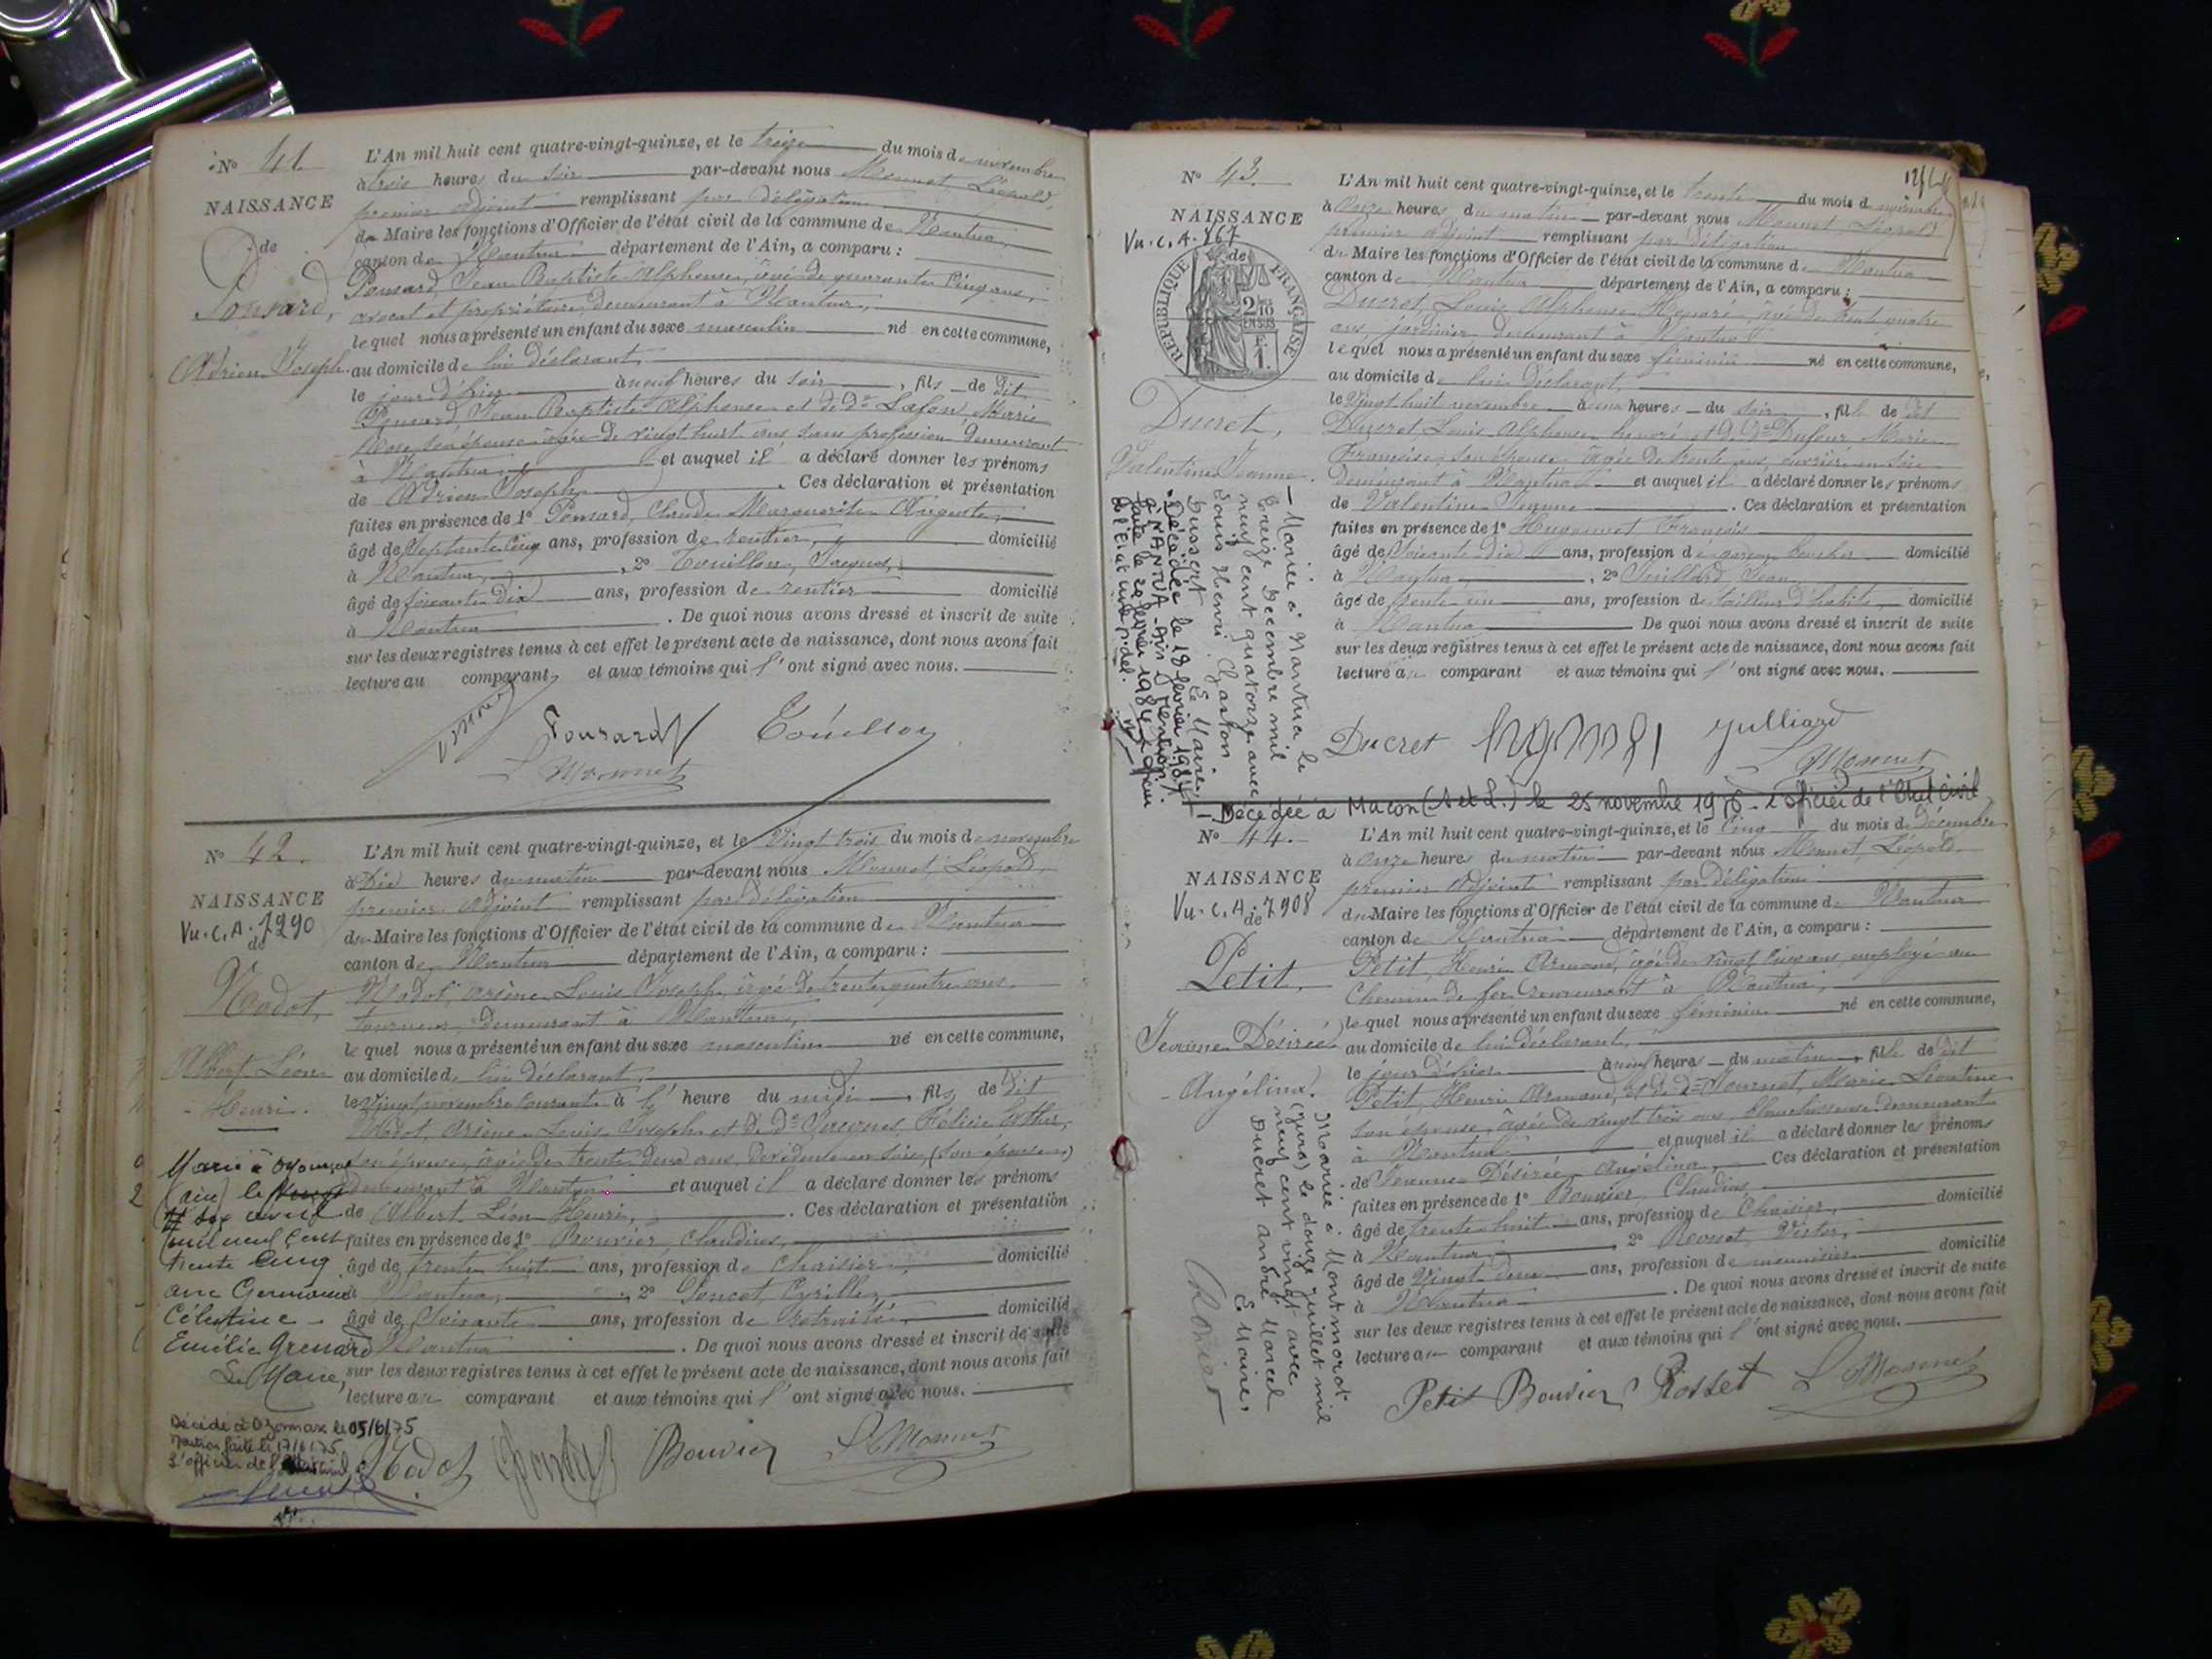 No 41
NAISSANCE
de
Ponsard,
Adrien Joseph.
L'An mil huit cent quatre-vingt-quinze, et le treize du mois de novembre
à trois heures du soir par-devant nous Monnet, Léopold,
premier adjoint remplissant par délégation
du Maire les fonctions d'Officier de l'état civil de la commune de Nantua,
canton de Nantua département de l'Ain, a comparu :
Ponsard, Jean Baptiste Alphonse, âgé de quarante cinq ans,
avocat et propriétaire, demeurant à Nantua,
lequel nous a présenté un enfant du sexe masculin né en cette commune,
au domicile de lui déclarant,
le jour d'hier à neuf heures du soir, fils de dit
Ponsard, Jean Baptiste Alphonse et de de Lafont, Marie
son épouse âgée de vingt huit ans sans profession demeurant
à Nantua, et auquel il a déclaré donner les prénoms
de Adrien Joseph. Ces déclaration et présentation
faites en présence de 1o Ponsard, Claude Marguerite Auguste,
âgé de septante cinq ans, profession de rentier, domicilié
à Nantua, 2o Touillon, Jacques,
âgé de soixante dix ans, profession de rentier domicilié
à Nantua. De quoi nous avons dressé et inscrit de suite
sur les deux registres tenus à cet effet le présent acte de naissance, dont nous avons fait
lecture au comparant et aux témoins qui l'ont signé avec nous.
Ponsard Touillon
L Monnet
No 42.
NAISSANCE
Vu. C. A. 7290
de
Nodot,
Albert Léon
Henri.
L'An mil huit cent quatre-vingt-quinze, et le vingt trois du mois de novembre
à dix heures du matin par-devant nous Monnet, Léopold,
premier adjoint remplissant par délégation
du Maire les fonctions d'Officier de l'état civil de la commune de Nantua
canton de Nantua département de l'Ain, a comparu :
Nodot, Arsène Louis Joseph, âgé de trente quatre ans,
tourneur, demeurant à Nantua,
lequel nous a présenté un enfant du sexe masculin né en cette commune,
au domicile de lui déclarant,
le vingt novembre courant à l'heure du midi, fils de dit
Nodot, Arsène Louis Joseph et de de Jacques, Félicie Esther,
son épouse, âgée de trente deux ans, dévideuse en soie, (son épouse)
demeurant à Nantua, et auquel il a déclaré donner les prénoms
de Albert Léon Henri,. Ces déclaration et présentation
faites en présence de 1o Bouvier, Claudius,
âgé de trente huit ans, profession de chaisier, domicilié
à Nantua, 2o Goncet, Cyrille,
âgé de soixante ans, profession de retraité, domicilié
à Nantua. De quoi nous avons dressé et inscrit de suite
sur les deux registres tenus à cet effet le présent acte de naissance, dont nous avons fait
lecture au comparant et aux témoins qui l'ont signé avec nous.
Marié à Oyonnax
(Ain) le
six avril
mil neuf cent
trente cinq
avec Germaine
Célestine
Emélie Grenard
Le Maire,
Décédé à Oyonnax le 05/6/75
Mention faite le 17/6/75
L'officier de l'état civil
Nodot Bouvier L Monnet
No 43.
NAISSANCE
Vu. C. A. 767
de
RÉPUBLIQUE FRANÇAISE
2/10 EN SUS
Ducret,
Valentine Jeanne.
L'An mil huit cent quatre-vingt-quinze, et le trente du mois de novembre
à onze heures du matin par-devant nous Monnet, Léopold
premier adjoint remplissant par délégation
du Maire les fonctions d'Officier de l'état civil de la commune de Nantua
canton de Nantua département de l'Ain, a comparu :
Ducret, Louis Alphonse Honoré, âgé de trente quatre
ans, jardinier demeurant à Nantua
lequel nous a présenté un enfant du sexe féminin né en cette commune,
au domicile de lui déclarant,
le vingt huit novembre à heures du soir, fille de dit
Ducret, Louis Alphonse honoré et de de Dufour Marie
Françoise, son épouse âgée de trente ans, ouvrière en soie
demeurant à Nantua et auquel il a déclaré donner les prénoms
de Valentine Jeanne. Ces déclaration et présentation
faites en présence de 1o Hugonnet François
âgé de soixante dix ans, profession de garçon boucher domicilié
à Nantua, 2o Juillard, Jean
âgé de trente un ans, profession de tailleur d'habits, domicilié
à Nantua De quoi nous avons dressé et inscrit de suite
sur les deux registres tenus à cet effet le présent acte de naissance, dont nous avons fait
lecture au comparant et aux témoins qui l'ont signé avec nous.
Mariée à Nantua le
treize Décembre mil
neuf cent quatorze avec
Louis Henri Gaston
Cussert Le Maire,
Décédée le 18 février 1984
à NANTUA - Ain - Mention
faite le 20 février 1984
de l'Etat civil p. del.
Ducret Julliard
L Monnet
Décédée à Macon (S et L.) le 25 novembre 1976 - L'officier de l'Etat civil
No 44.
NAISSANCE
Vu. C. A. 7908
de
Petit,
Jeanne Désirée
Angélina.
L'An mil huit cent quatre-vingt-quinze, et le cinq du mois de Décembre
à onze heures du matin par-devant nous Monnet, Léopold,
premier adjoint remplissant par délégation
du Maire les fonctions d'Officier de l'état civil de la commune de Nantua
canton de Nantua département de l'Ain, a comparu :
Petit, Henri Armand, âgé de vingt cinq ans, employé au
chemin de fer demeurant à Nantua,
lequel nous a présenté un enfant du sexe féminin né en cette commune,
au domicile de lui déclarant,
le jour d'hier à neuf heures du matin, fille de dit
Petit, Henri Armand, et de de Journet, Marie Léontine
son épouse, âgée de vingt trois ans, blanchisseuse demeurant
à Nantua et auquel il a déclaré donner les prénoms
de Jeanne Désirée Angélina, Ces déclaration et présentation
faites en présence de 1o Bouvier, Claudius
âgé de trente huit ans, profession de Chaisier, domicilié
à Nantua, 2o Rosset, Victor,
âgé de vingt deux ans, profession de menuisier domicilié
à Nantua. De quoi nous avons dressé et inscrit de suite
sur les deux registres tenus à cet effet le présent acte de naissance, dont nous avons fait
lecture au comparant et aux témoins qui l'ont signé avec nous.
Mariée à Montmorot
(Jura) le douze juillet mil
neuf cent vingt avec
Ducret André Marcel
Le Maire,
Petit Bouvier Rosset L Monnet